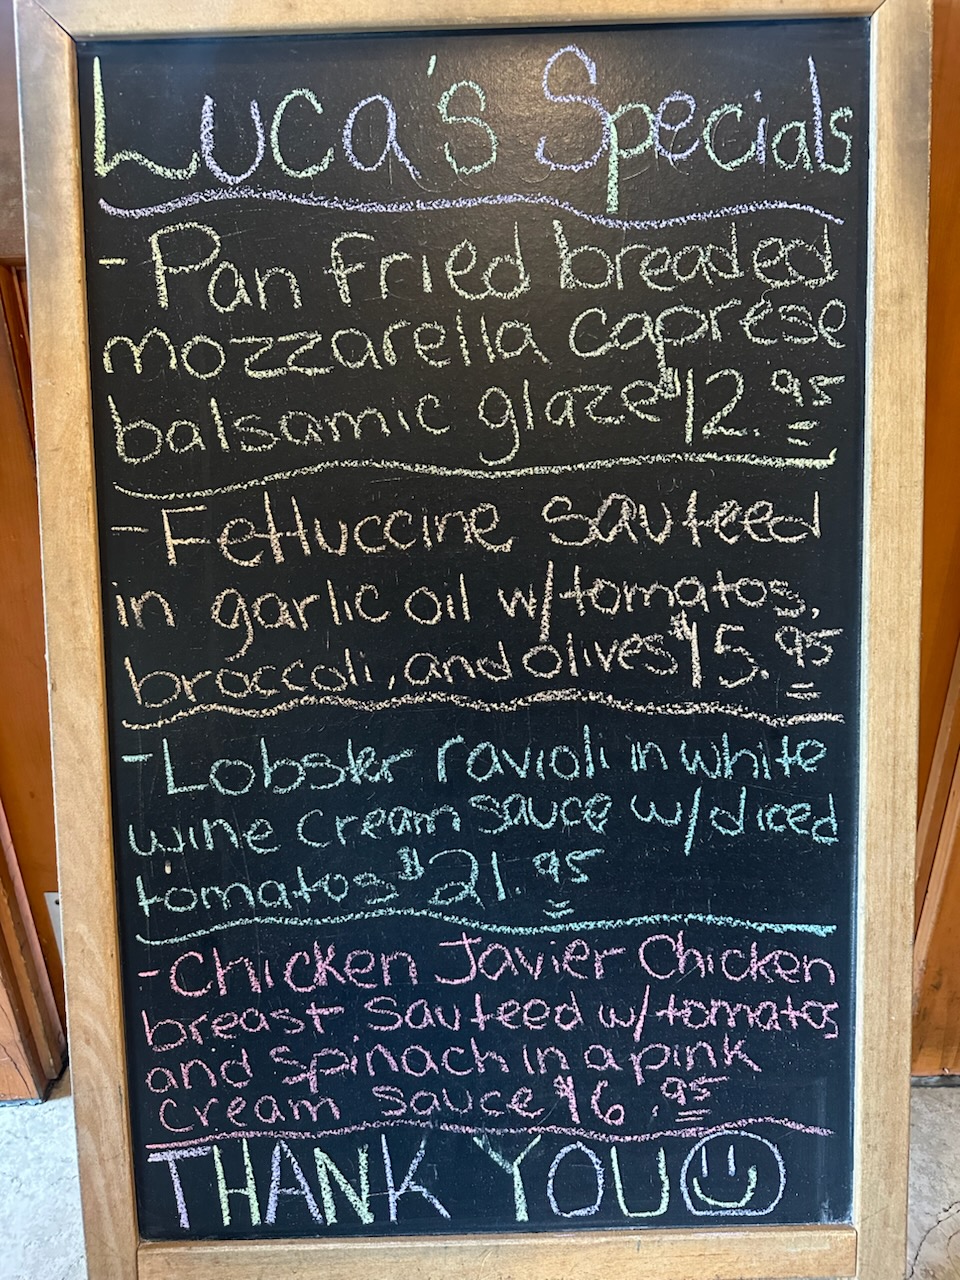 Luca's Specials
- Pan fried breaded
mozzarella caprése
balsamic glaze $12.95
- Fettuccine sauteed
in garlic oil w/tomatos,
broccoli, and olives $15.95
- Lobster ravioli in white
wine cream sauce w/diced
tomatos $21.95
- Chicken Javier Chicken
breast sauteed w/tomatos
and spinach in a pink
cream sauce $16.95
THANK YOU